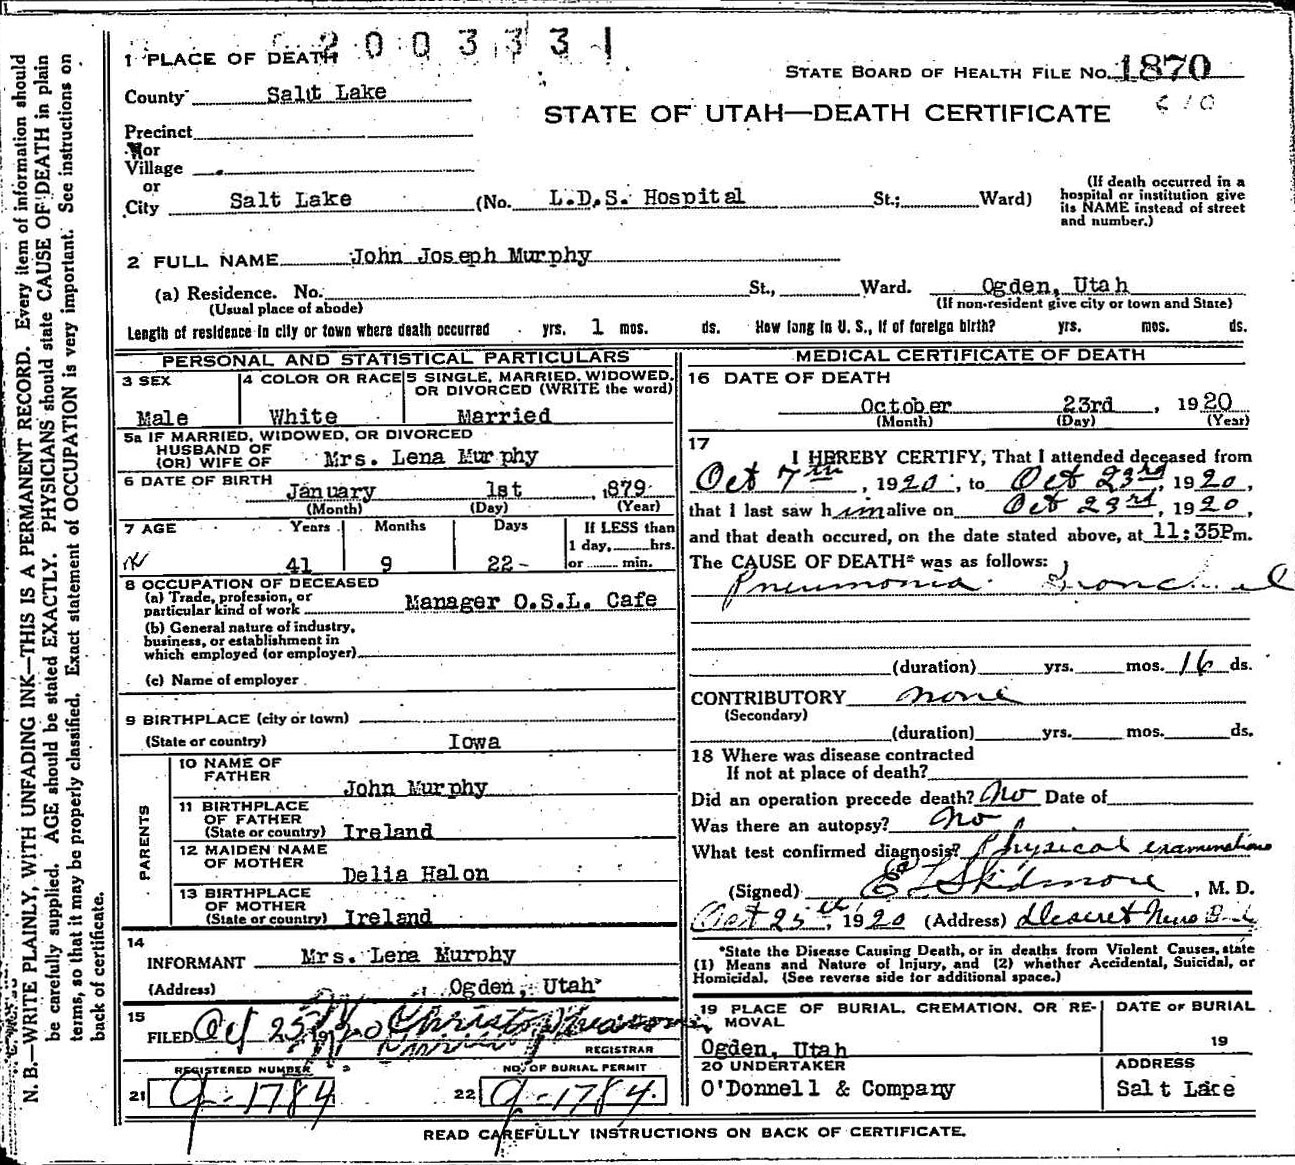 200331
1 PLACE OF DEATH
STATE BOARD OF HEALTH FILE NO. 1870
County Salt Lake
STATE OF UTAH—DEATH CERTIFICATE
Precinct
or
Village
or
City Salt Lake (No. L.D.S. Hospital St.; Ward)
(If death occurred in a
hospital or institution give
its NAME instead of street
and number.)
2 FULL NAME John Joseph Murphy
(a) Residence. No. St., Ward. Ogden, Utah
(Usual place of abode) (If non-resident give city or town and State)
Length of residence in city or town where death occurred yrs. 1 mos. ds. How long in U. S., if of foreign birth? yrs. mos. ds.
PERSONAL AND STATISTICAL PARTICULARS
3 SEX
Male
4 COLOR OR RACE
White
5 SINGLE, MARRIED, WIDOWED,
OR DIVORCED (WRITE the word)
Married
5a IF MARRIED, WIDOWED, OR DIVORCED
HUSBAND OF
(OR) WIFE OF Mrs. Lena Murphy
6 DATE OF BIRTH January 1st , 1879
(Month) (Day) (Year)
7 AGE Years Months Days If LESS than
1 day, hrs.
41 9 22 or min.
8 OCCUPATION OF DECEASED
(a) Trade, profession, or
particular kind of work Manager O.S.L. Cafe
(b) General nature of industry,
business, or establishment in
which employed (or employer)
(c) Name of employer
9 BIRTHPLACE (city or town)
(State or country) Iowa
PARENTS
10 NAME OF
FATHER John Murphy
11 BIRTHPLACE
OF FATHER
(State or country) Ireland
12 MAIDEN NAME
OF MOTHER Delia Halon
13 BIRTHPLACE
OF MOTHER
(State or country) Ireland
14
INFORMANT Mrs. Lena Murphy
(Address) Ogden, Utah
15
FILED Oct 25
REGISTRAR
REGISTERED NUMBER NO. OF BURIAL PERMIT
21 9-1784 22 9-1784.
MEDICAL CERTIFICATE OF DEATH
16 DATE OF DEATH
October 23rd , 1920
(Month) (Day) (Year)
17
I HEREBY CERTIFY, That I attended deceased from
Oct 7th , 1920, to Oct 23rd, 1920,
that I last saw him alive on Oct 23rd, 1920,
and that death occured, on the date stated above, at 11:35Pm.
The CAUSE OF DEATH* was as follows:
Pneumonia Bronchial
(duration) yrs. mos. 16 ds.
CONTRIBUTORY none
(Secondary)
(duration) yrs. mos. ds.
18 Where was disease contracted
If not at place of death?
Did an operation precede death? No Date of
Was there an autopsy? No
What test confirmed diagnosis? Physical examinations
(Signed) Skidmore , M. D.
Oct 25th, 1920 (Address) Deseret News
*State the Disease Causing Death, or in deaths from Violent Causes, state
(1) Means and Nature of Injury, and (2) whether Accidental, Suicidal, or
Homicidal. (See reverse side for additional space.)
19 PLACE OF BURIAL, CREMATION, OR RE-
MOVAL
Ogden, Utah
DATE OF BURIAL
19
20 UNDERTAKER
O'Donnell & Company
ADDRESS
Salt Lake
READ CAREFULLY INSTRUCTIONS ON BACK OF CERTIFICATE.
N. B.—WRITE PLAINLY, WITH UNFADING INK—THIS IS A PERMANENT RECORD. Every item of information should
be carefully supplied. AGE should be stated EXACTLY. PHYSICIANS should state CAUSE OF DEATH in plain
terms, so that it may be properly classified. Exact statement of OCCUPATION is very important. See instructions on
back of certificate.